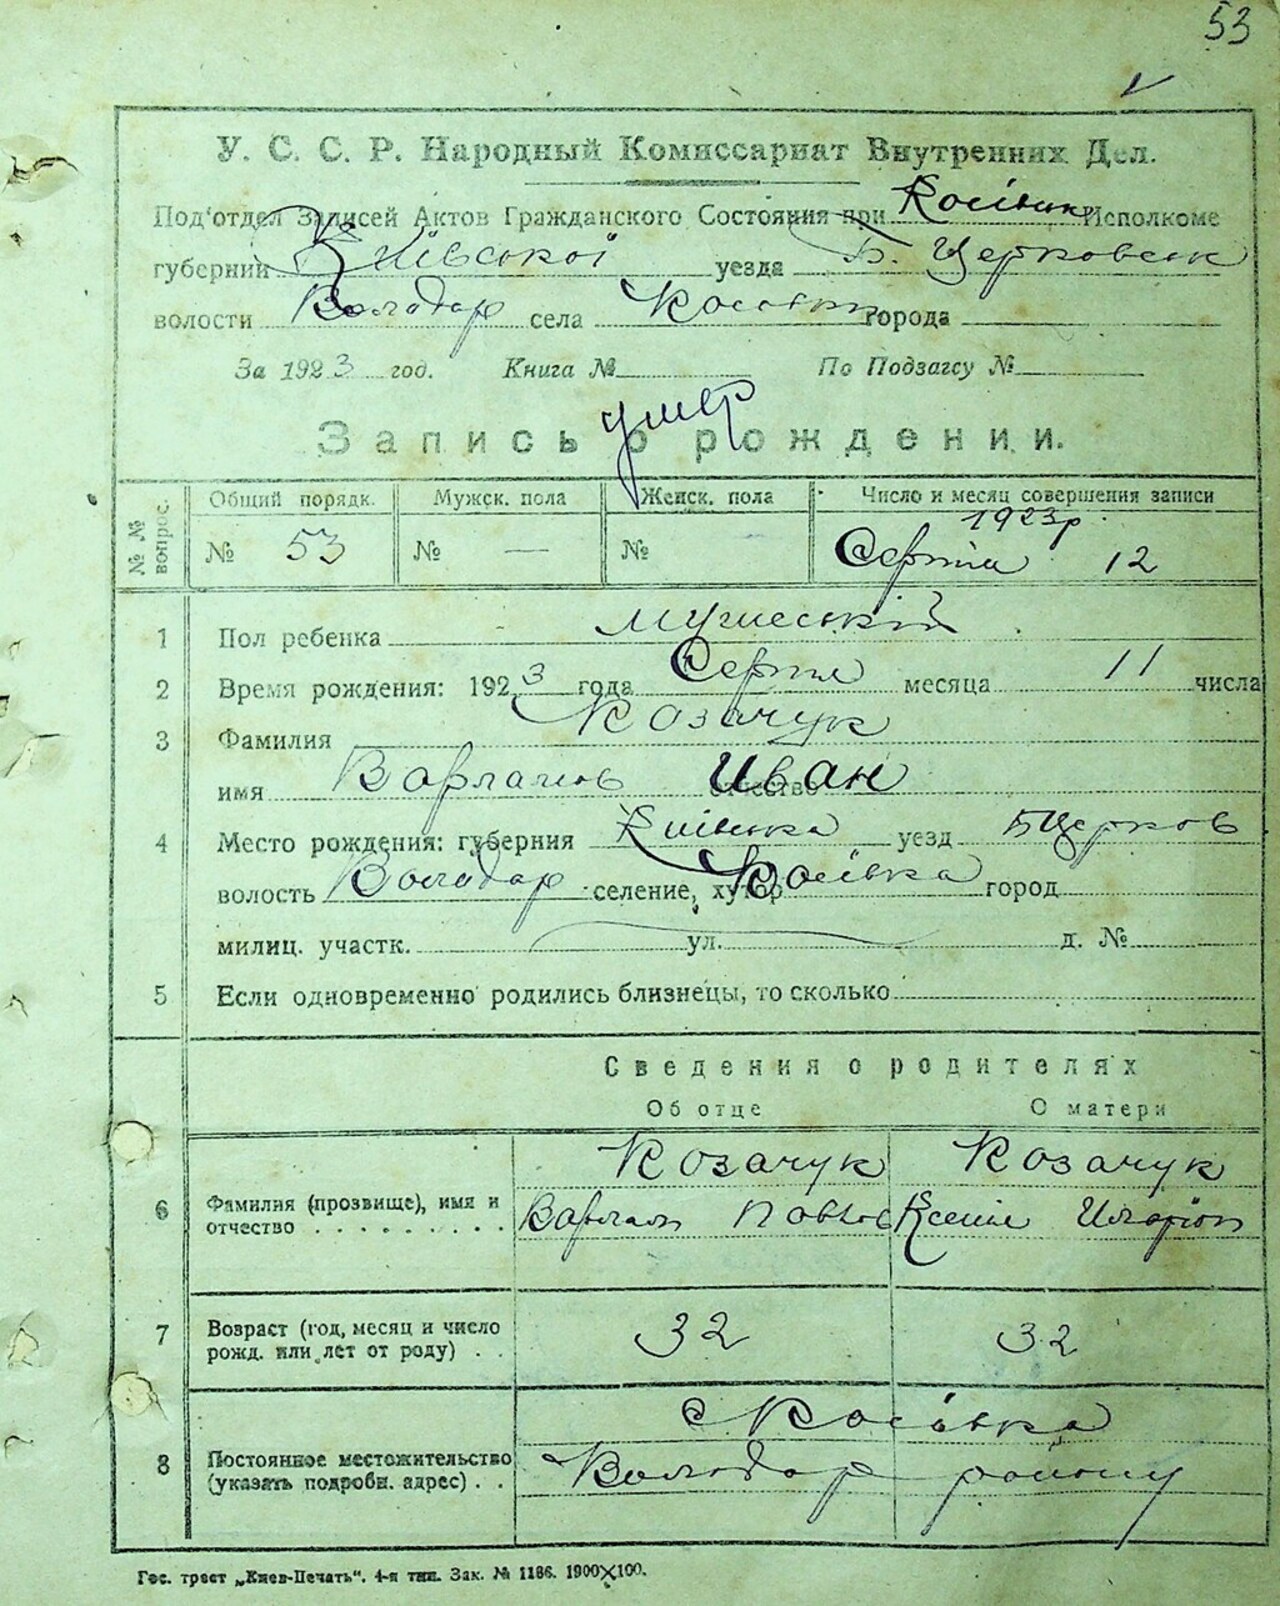 53
У. С. С. Р. Народный Комиссариат Внутренних Дел.
Под'отдел Записей Актов Гражданского Состояния при Косівск Исполкоме
губернии Київської уезда Б. Церковськ
волости Володар села Косівки города
За 1923 год. Книга № По Подзагсу №
умер
Запись о рождении.
№ № вопрос. Общий порядк. Мужск. пола Женск. пола Число и месяц совершения записи
1923 р.
№ 53 № — № Серпня 12
1 Пол ребенка мужеський
2 Время рождения: 1923 года Серпня месяца 11 числа
3 Фамилия Козачук
имя Варламов отчество Иван
4 Место рождения: губерния Київська уезд БЦерков
волость Володар селение, хутор Косівка город
милиц. участк. ул. д. №
5 Если одновременно родились близнецы, то сколько
Сведения о родителях
Об отце О матери
Козачук Козачук
6 Фамилия (прозвище), имя и
отчество . . . . . . . . . Варлам Павлов Ксенія Иларіон
7 Возраст (год, месяц и число
рожд. или лет от роду) . . 32 32
с Косівка
8 Постоянное местожительство
(указать подробн. адрес) . . Володар району
Гос. трест „Киев-Печать“. 4-я тип. Зак. № 1186. 1900×100.